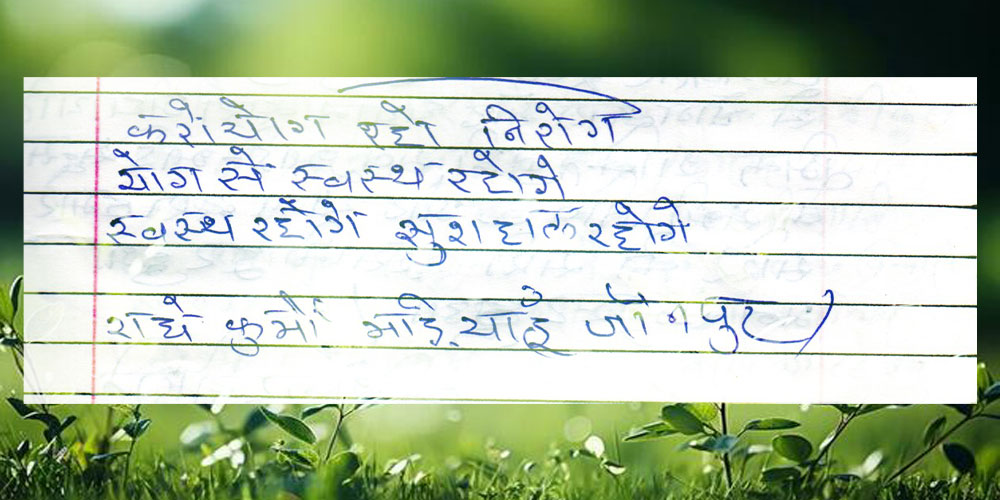 करो योग रहो निरोग
योग से स्वस्थ रहोगे
स्वस्थ रहोगे खुशहाल रहोगे
राधे कुर्मी मड़ियाहूं जौनपुर